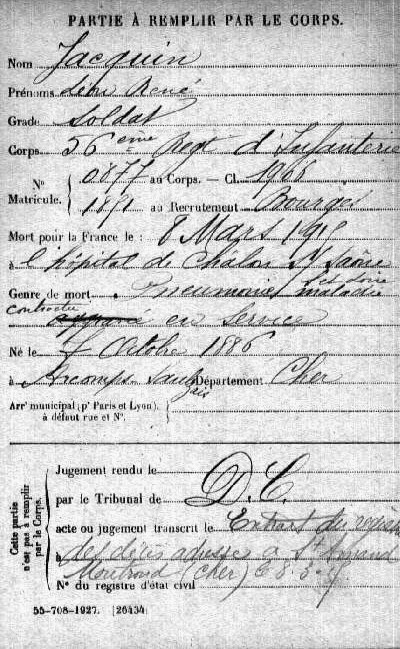 PARTIE À REMPLIR PAR LE CORPS.
Nom Jacquin
Prénoms René
Grade Soldat
Corps 56 eme Regt d'Infanterie
N° Matricule. 0877 au Corps. — Cl. 1906
1851 au Recrutement Bourges
Mort pour la France le 8 Mars 1915
à l'hôpital de Chalon s/ Saône
Genre de mort Pneumonie maladie
contractée en service
Né le 7 Octobre 1886
à Département Cher
Arrt municipal (pr Paris et Lyon),
à défaut rue et N°.
Cette partie n'est pas à remplir par le Corps.
Jugement rendu le
par le Tribunal de D.C.
acte ou jugement transcrit le Extrait du registre
à des décès adressé à St Amand
Montrond (Cher)
N° du registre d'état civil
55-708-1927. [26434.